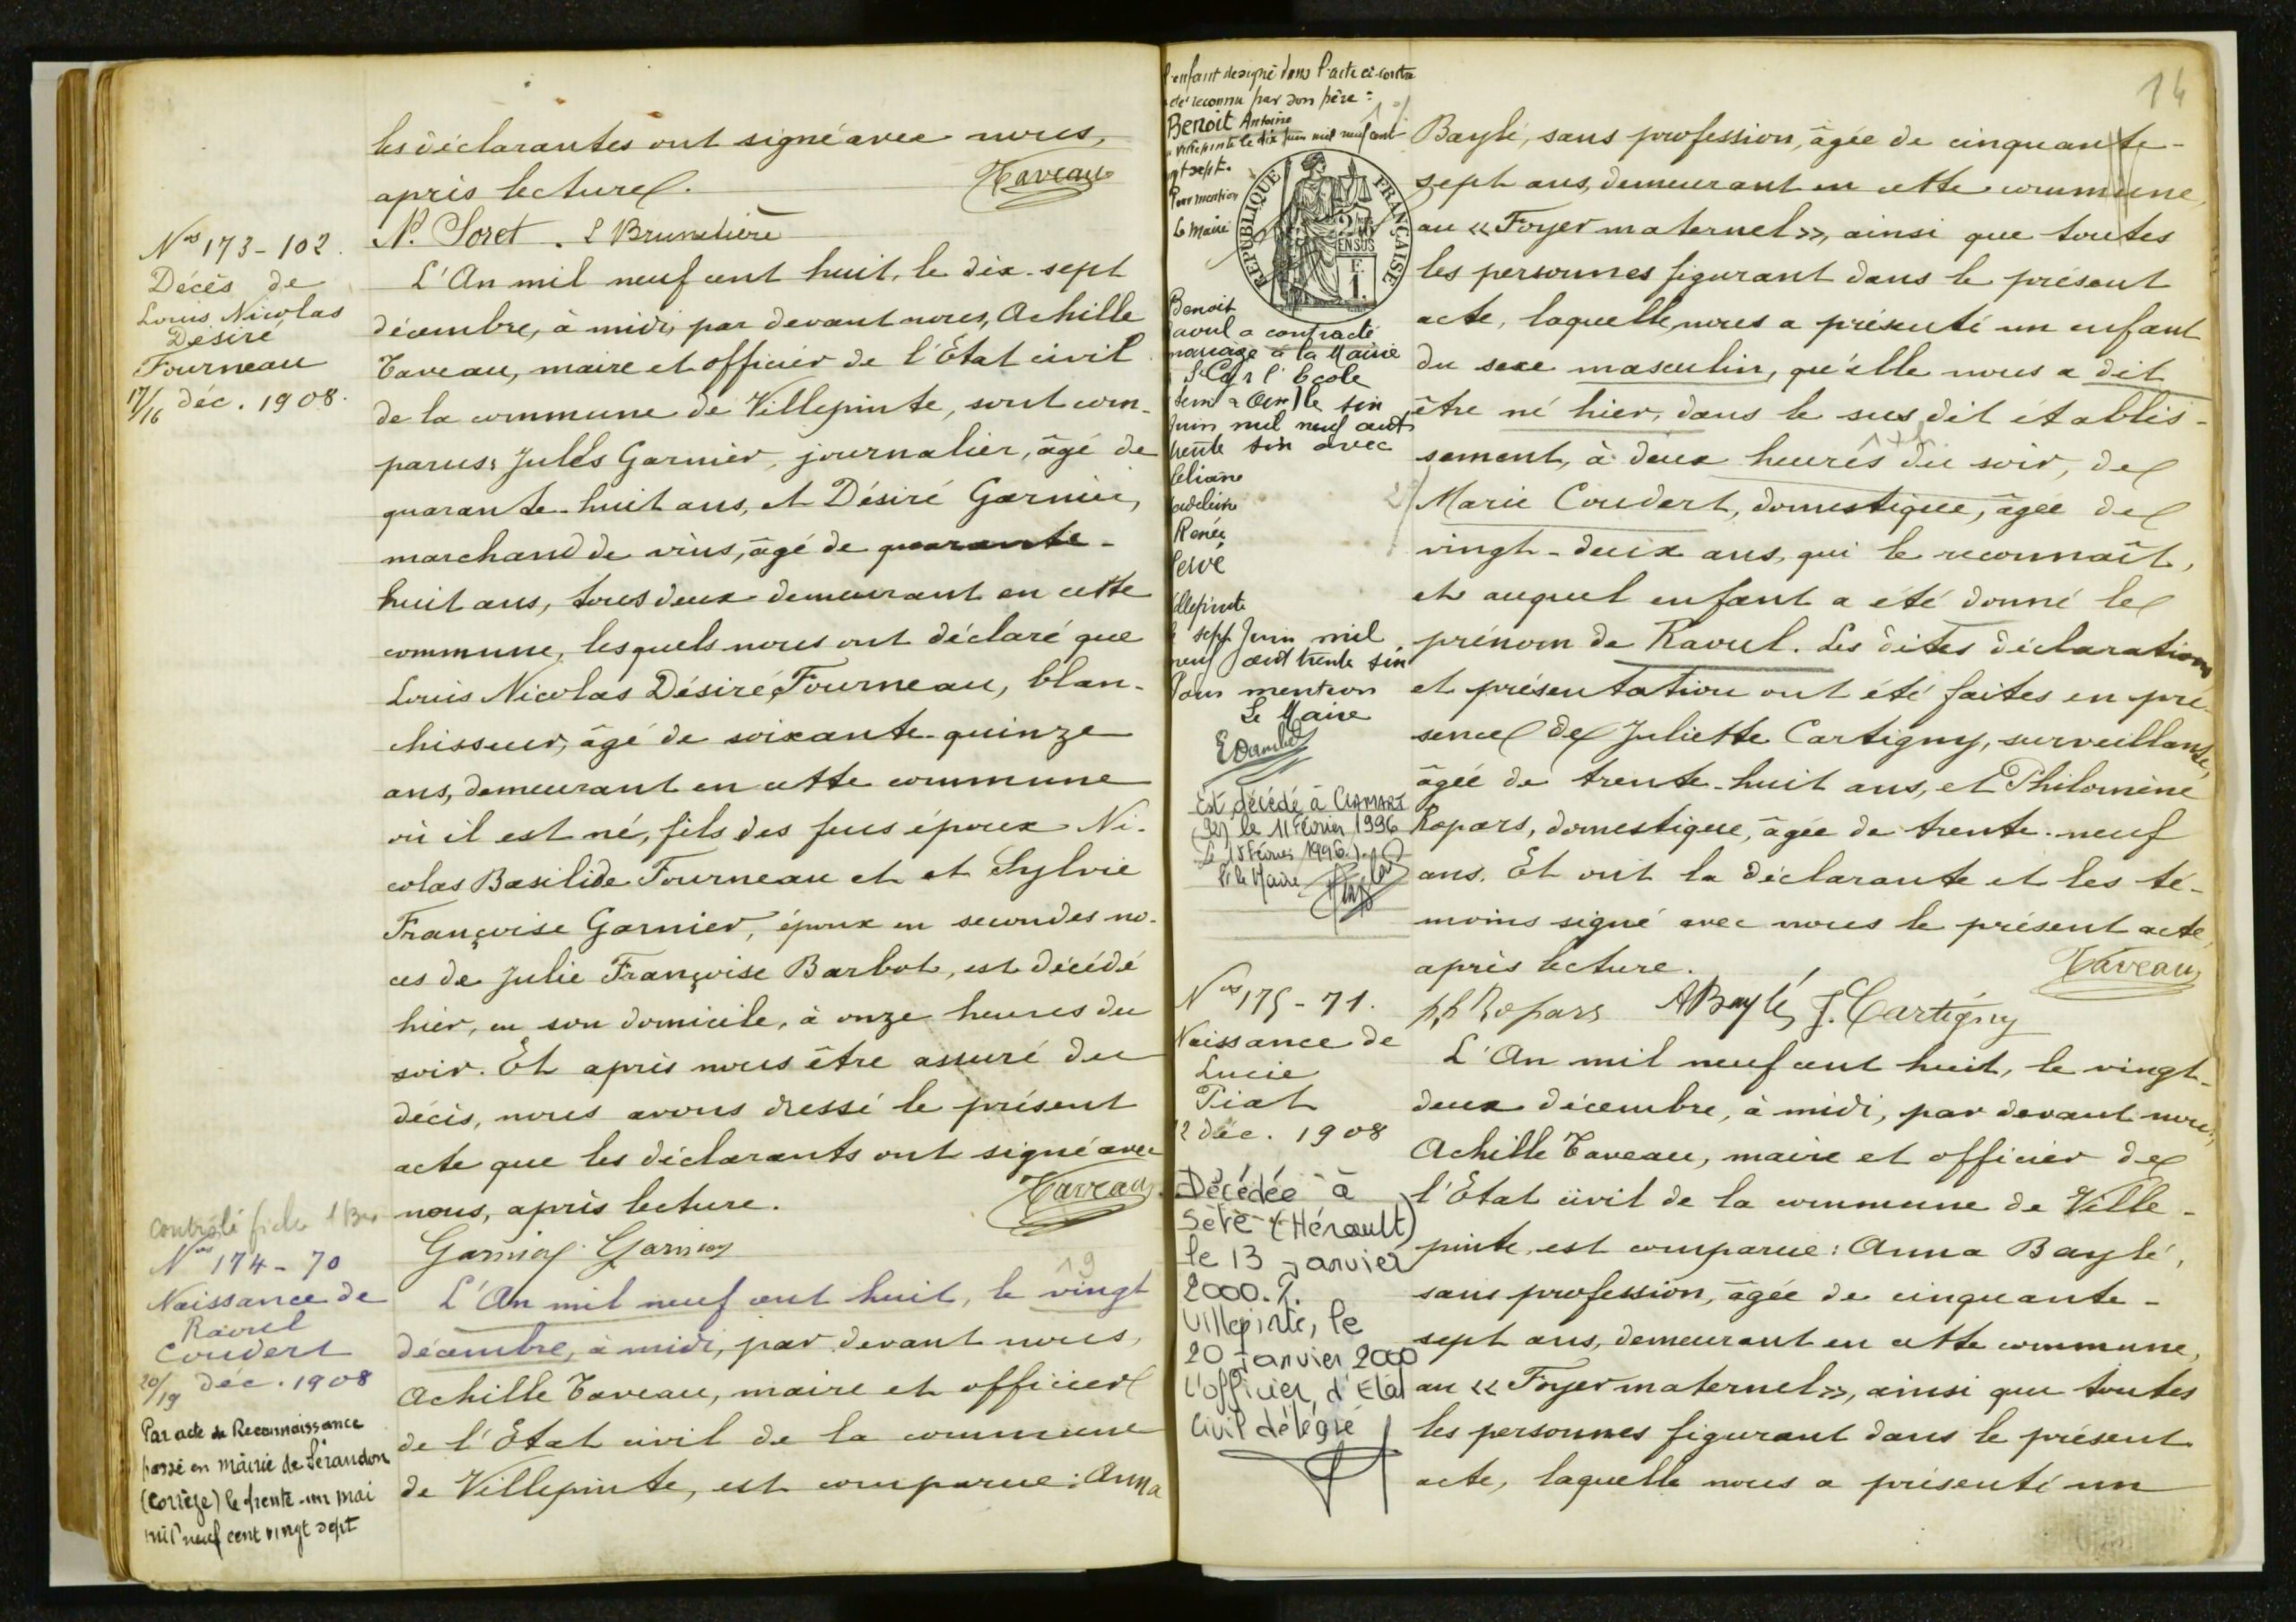 les déclarantes ont signé avec nous,
après lecture.
Taveau
N. Soret. L Brunetière
Nos 173-102.
Décès de
Louis Nicolas
Désiré
Fourneau
17/16 déc. 1908.
L'An mil neuf cent huit, le dix-sept
décembre, à midi, par devant nous, Achille
Taveau, maire et officier de l'État civil
de la commune de Villepinte, sont com-
parus: Jules Garnier, journalier, âgé de
quarante-huit ans, et Désiré Garnier,
marchand de vins, âgé de quarante-
huit ans, tous deux demeurant en cette
commune, lesquels nous ont déclaré que
Louis Nicolas Désiré Fourneau, blan-
chisseur, âgé de soixante-quinze
ans, demeurant en cette commune
où il est né, fils des feus époux Ni-
colas Basilide Fourneau et et Sylvie
Françoise Garnier, époux en secondes no-
ces de Julie Françoise Barbot, est décédé
hier, en son domicile, à onze heures du
soir. Et après nous être assuré du
décès, nous avons dressé le présent
acte que les déclarants ont signé avec
nous, après lecture.
Taveau
Garnier Garnier
contrôlé fiche
Nos 174-70
Naissance de
Raoul
Coudert
20/19 déc. 1908
Par acte de Reconnaissance
passé en mairie de Sérandon
(Corrèze) le trente-un mai
mil neuf cent vingt sept
19
L'An mil neuf cent huit, le vingt
décembre, à midi, par devant nous,
Achille Taveau, maire et officier
de l'État civil de la commune
de Villepinte, est comparue: Anna
14
l'enfant désigné dans l'acte ci-contre
été reconnu par son père:
Benoit Antoine
Villepinte le dix juin mil neuf cent
gt sept.
Pour mention
Le Maire
RÉPUBLIQUE FRANÇAISE
EN SUS
Benoit
Raoul a contracté
mariage à la Mairie
St Cyr l'Ecole
Seine & Oise) le six
Juin mil neuf cent
trente six avec
Renée
Villepinte
le sept Juin mil
neuf cent trente six
Pour mention
Le Maire
Est décédé à CLAMART
(92) le 11 Février 1996
Le 15 Février 1996
P/ le Maire
Baylé, sans profession, âgée de cinquante-
sept ans, demeurant en cette commune,
au «Foyer maternel», ainsi que toutes
les personnes figurant dans le présent
acte, laquelle nous a présenté un enfant
du sexe masculin, qu'elle nous a dit
être né hier, dans le sus dit établis-
sement, à deux heures du soir, de
Marie Coudert, domestique, âgée de
vingt-deux ans, qui le reconnaît,
et auquel enfant a été donné le
prénom de Raoul. Les dites déclarations
et présentation ont été faites en pré-
sence de Juliette Cartigny, surveillante,
âgée de trente-huit ans, et Philomène
Ropars, domestique, âgée de trente-neuf
ans. Et ont la déclarante et les té-
moins signé avec nous le présent acte,
après lecture.
Taveau
ph Ropars ABaylé J. Cartigny
Nos 175-71.
Naissance de
Lucie
Piat
déc. 1908
Décédée à
Sète (Hérault)
le 13 janvier
2000.
Villepinte, le
20 janvier 2000
L'officier d'État
Civil délégué
L'An mil neuf cent huit, le vingt-
deux décembre, à midi, par devant nous,
Achille Taveau, maire et officier de
l'État civil de la commune de Ville-
pinte, est comparue: Anna Baylé,
sans profession, âgée de cinquante-
sept ans, demeurant en cette commune,
au «Foyer maternel», ainsi que toutes
les personnes figurant dans le présent
acte, laquelle nous a présenté un